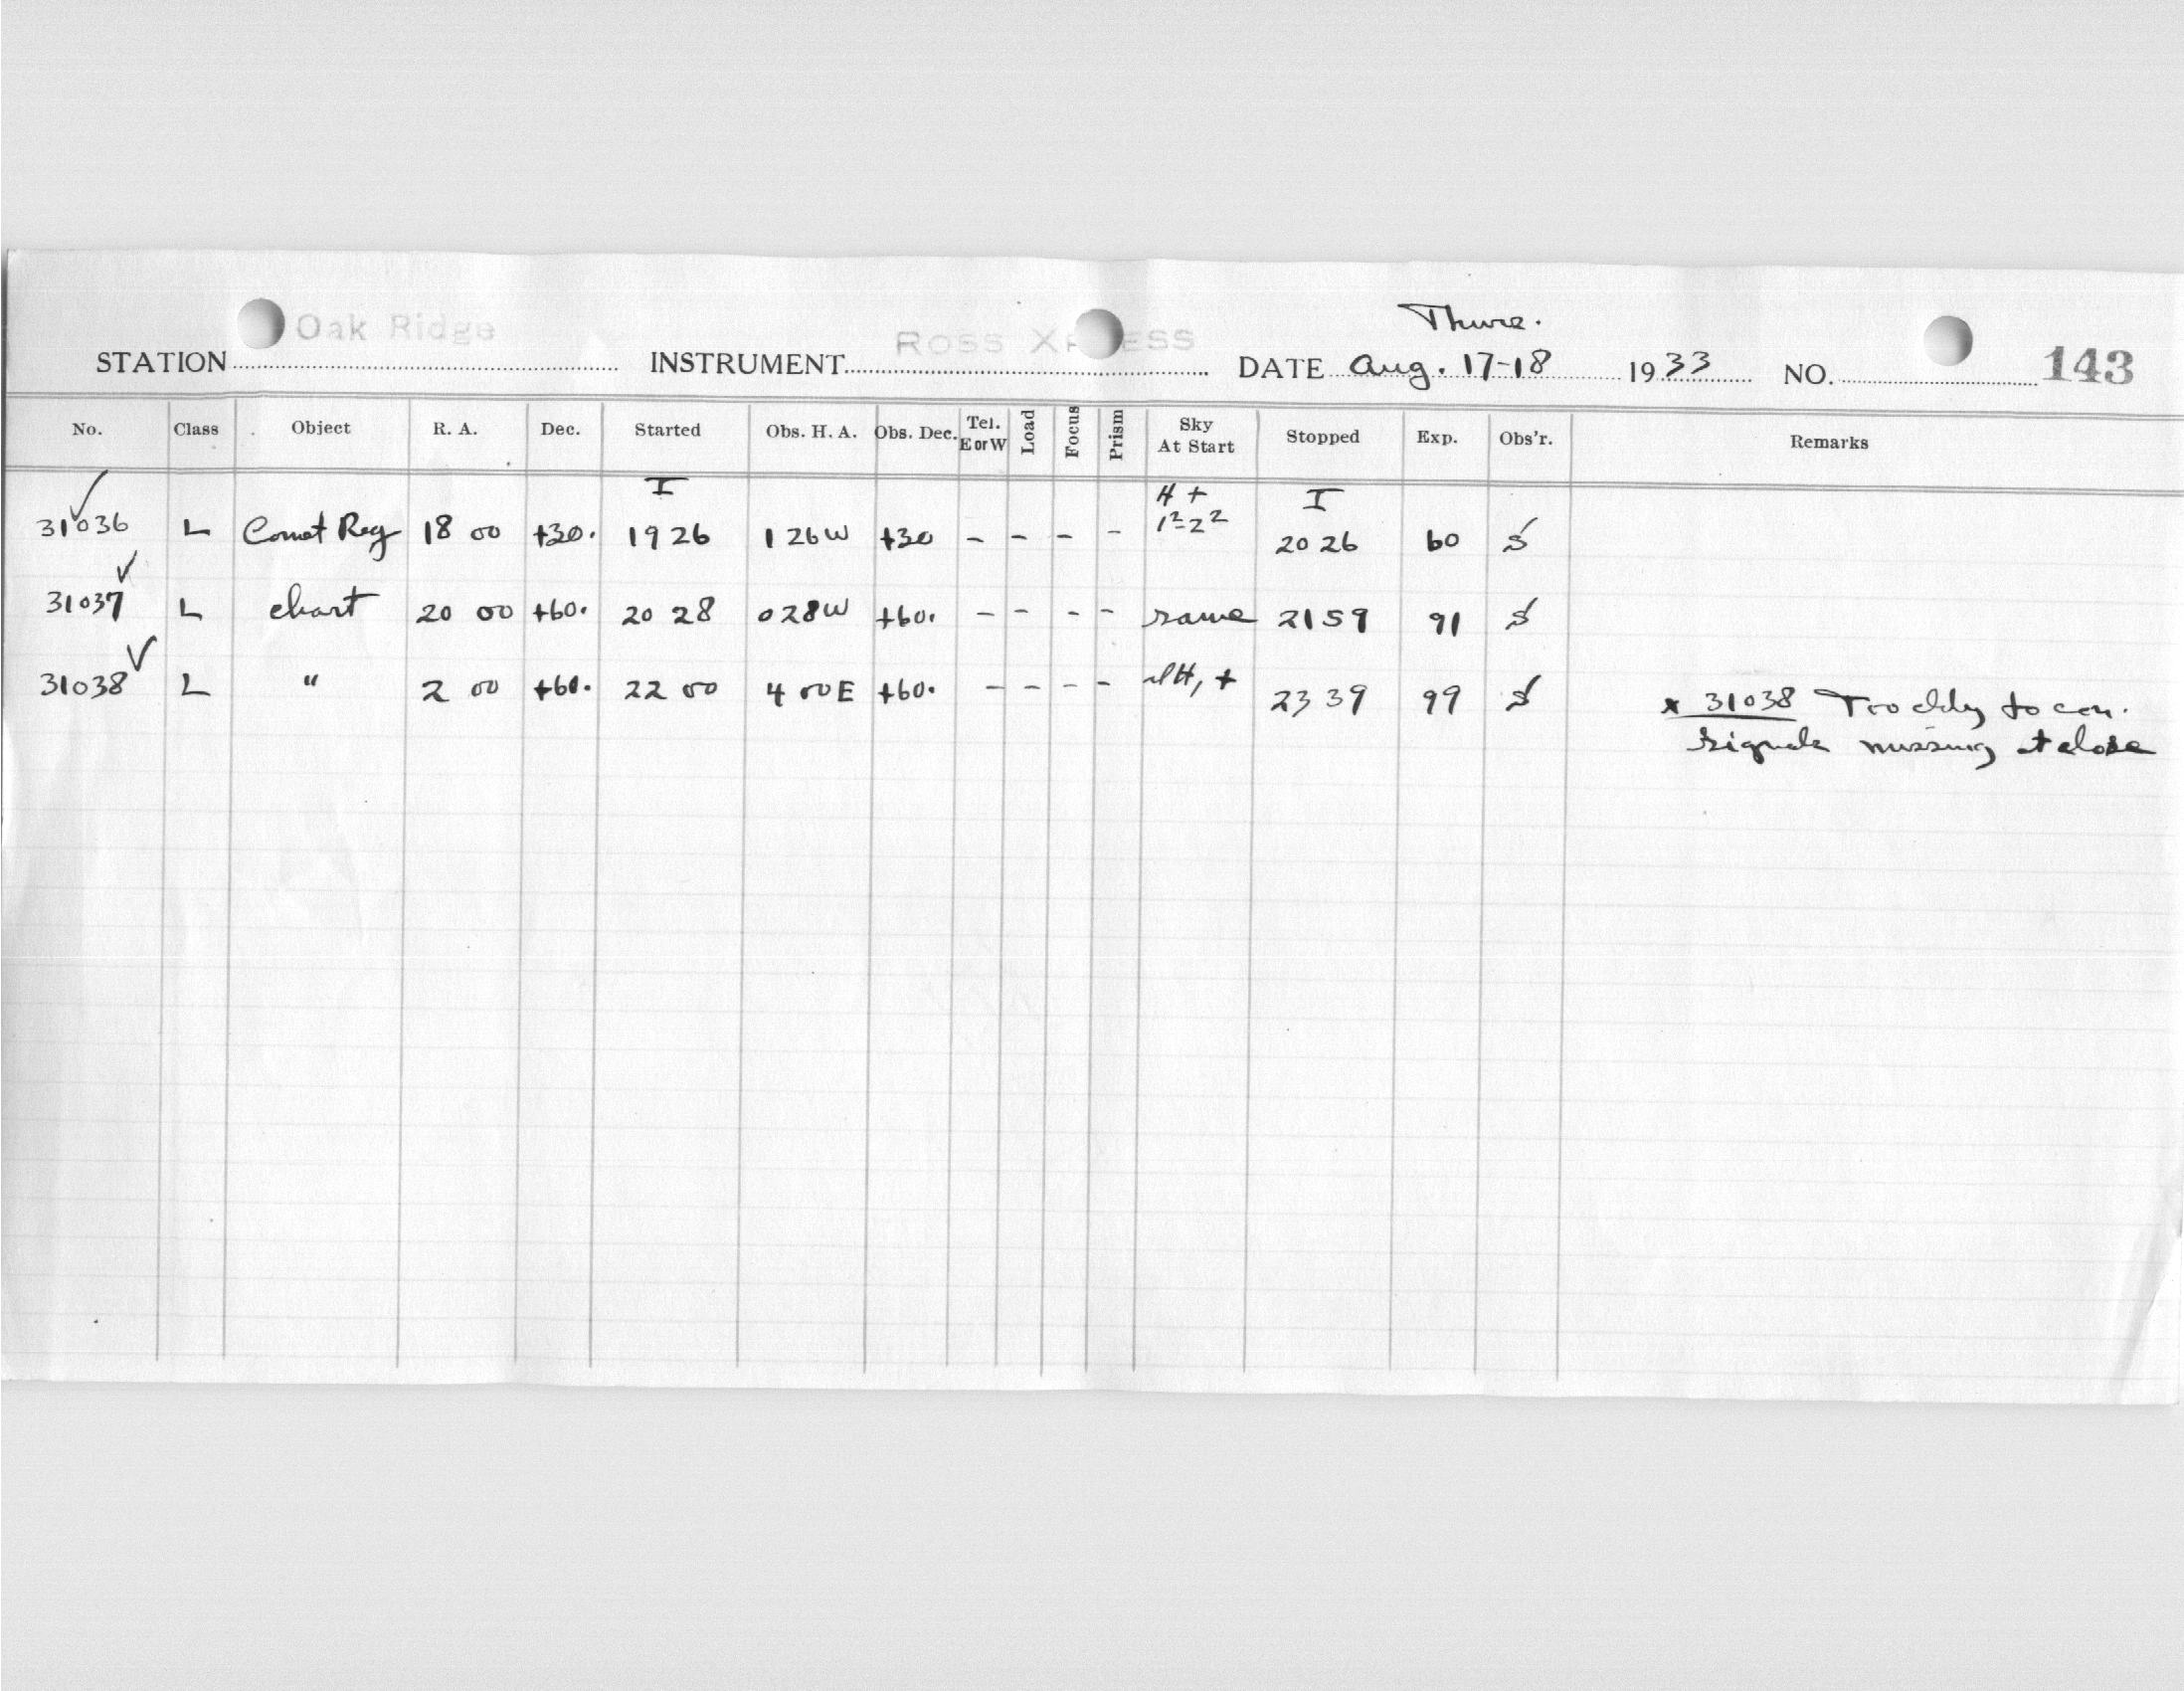 Thurs.
STATION Oak Ridge INSTRUMENT ROSS XPRESS DATE Aug. 17-18 1933 NO. 143
No. Class Object R. A. Dec. Started Obs. H. A. Obs. Dec. Tel. E or W Load Focus Prism Sky At Start Stopped Exp. Obs'r. Remarks
I H + I
31036 L Comet Reg 18 00 +30. 19 26 1 26W +30 - - - - 1²-2² 20 26 60 S
31037 L chart 20 00 +60. 20 28 0 28W +60. - - - - same 21 59 91 S
31038 L " 2 00 +60. 22 00 4 00E +60. - - - - H, + 23 39 99 S x 31038 Too cldy to con.
signals missing at close